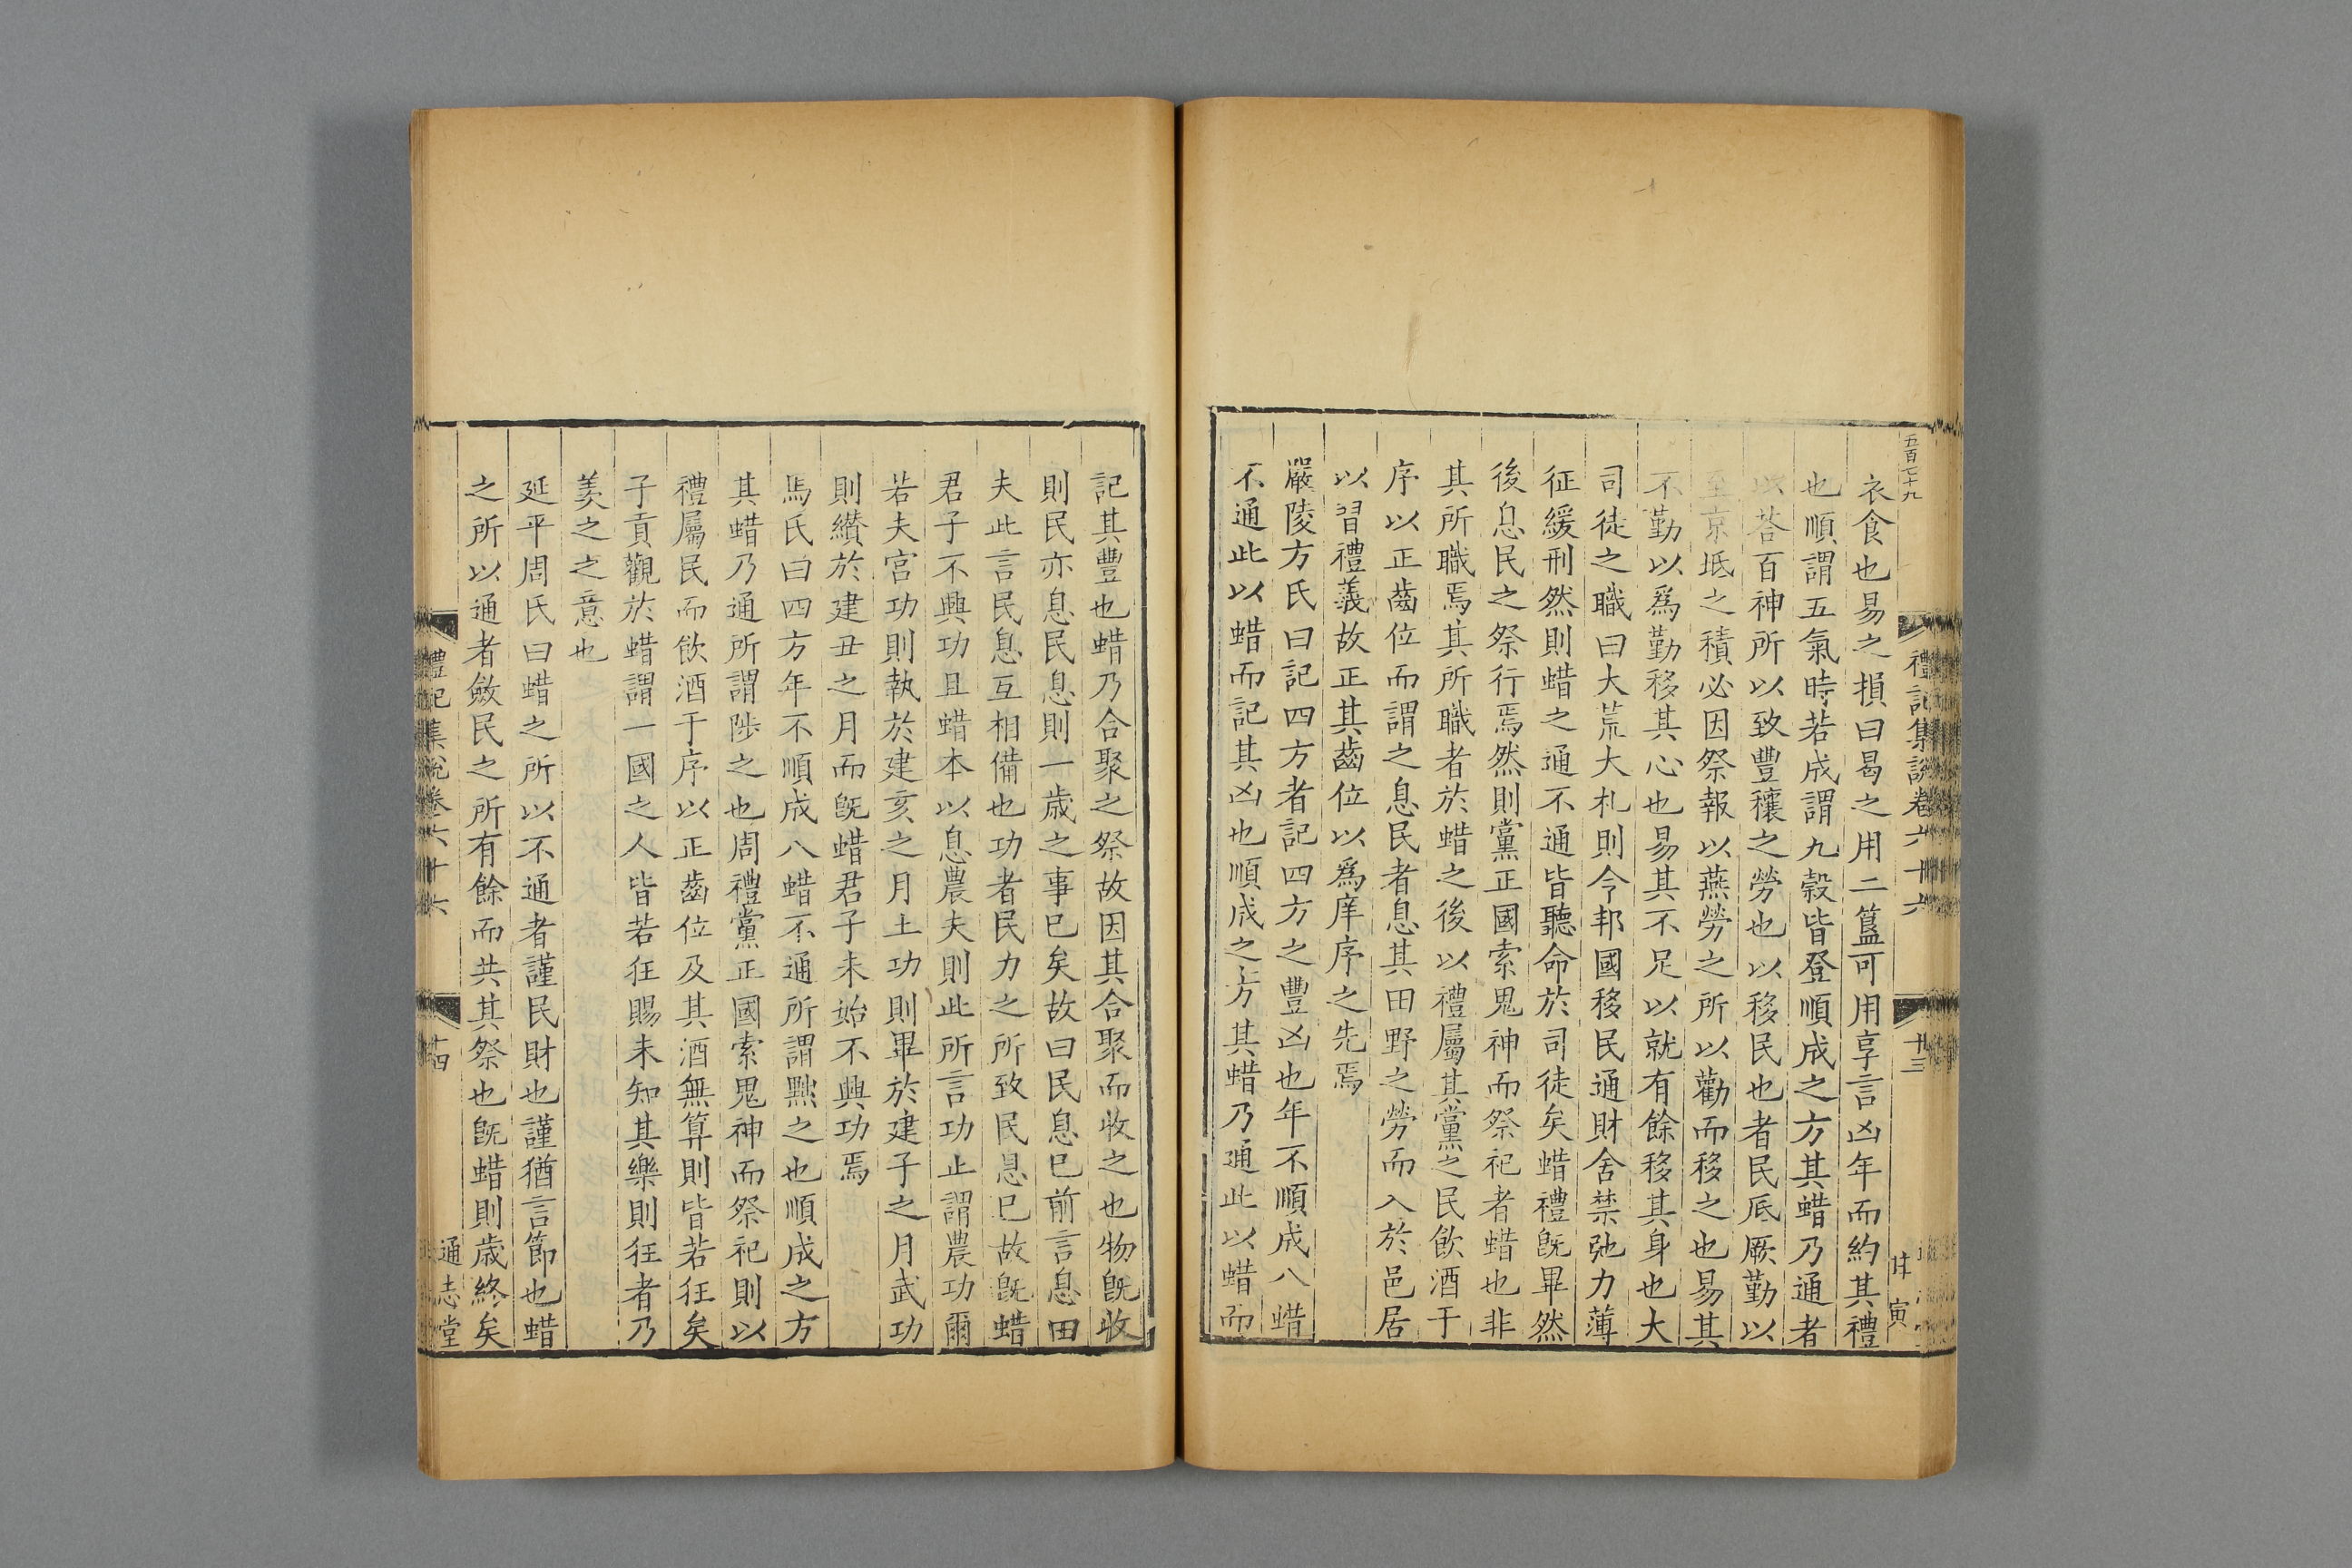 五百七十九
禮記集說卷六十六
十三
甘寅
衣食也易之損曰曷之用二簋可用享言凶年而約其禮
也順謂五氣時若成謂九穀皆登順成之方其蜡乃通者
以荅百神所以致豐穰之勞也以移民也者民厎厥勤以
至京坻之積必因祭報以燕勞之所以勸而移之也易其
不勤以爲勤移其心也易其不足以就有餘移其身也大
司徒之職曰大荒大札則令邦國移民通財舍禁弛力薄
征緩刑然則蜡之通不通皆聽命於司徒矣蜡禮旣畢然
後息民之祭行焉然則黨正國索鬼神而祭祀者蜡也非
其所職焉其所職者於蜡之後以禮屬其黨之民飲酒于
序以正齒位而謂之息民者息其田野之勞而入於邑居
以習禮義故正其齒位以爲庠序之先焉
嚴陵方氏曰記四方者記四方之豐凶也年不順成八蜡
不通此以蜡而記其凶也順成之方其蜡乃通此以蜡而
記其豐也蜡乃合聚之祭故因其合聚而收之也物旣收
則民亦息民息則一歲之事已矣故曰民息已前言息田
夫此言民息互相備也功者民力之所致民息已故旣蜡
君子不興功且蜡本以息農夫則此所言功止謂農功爾
若夫宮功則執於建亥之月土功則畢於建子之月武功
則纉於建丑之月而旣蜡君子未始不興功焉
馬氏曰四方年不順成八蜡不通所謂黜之也順成之方
其蜡乃通所謂陟之也周禮黨正國索鬼神而祭祀則以
禮屬民而飲酒于序以正齒位及其酒無算則皆若狂矣
子貢觀於蜡謂一國之人皆若狂賜未知其樂則狂者乃
羙之之意也
延平周氏曰蜡之所以不通者謹民財也謹猶言節也蜡
之所以通者斂民之所有餘而共其祭也旣蜡則歲終矣
禮記集說卷六十六
十四
通志堂